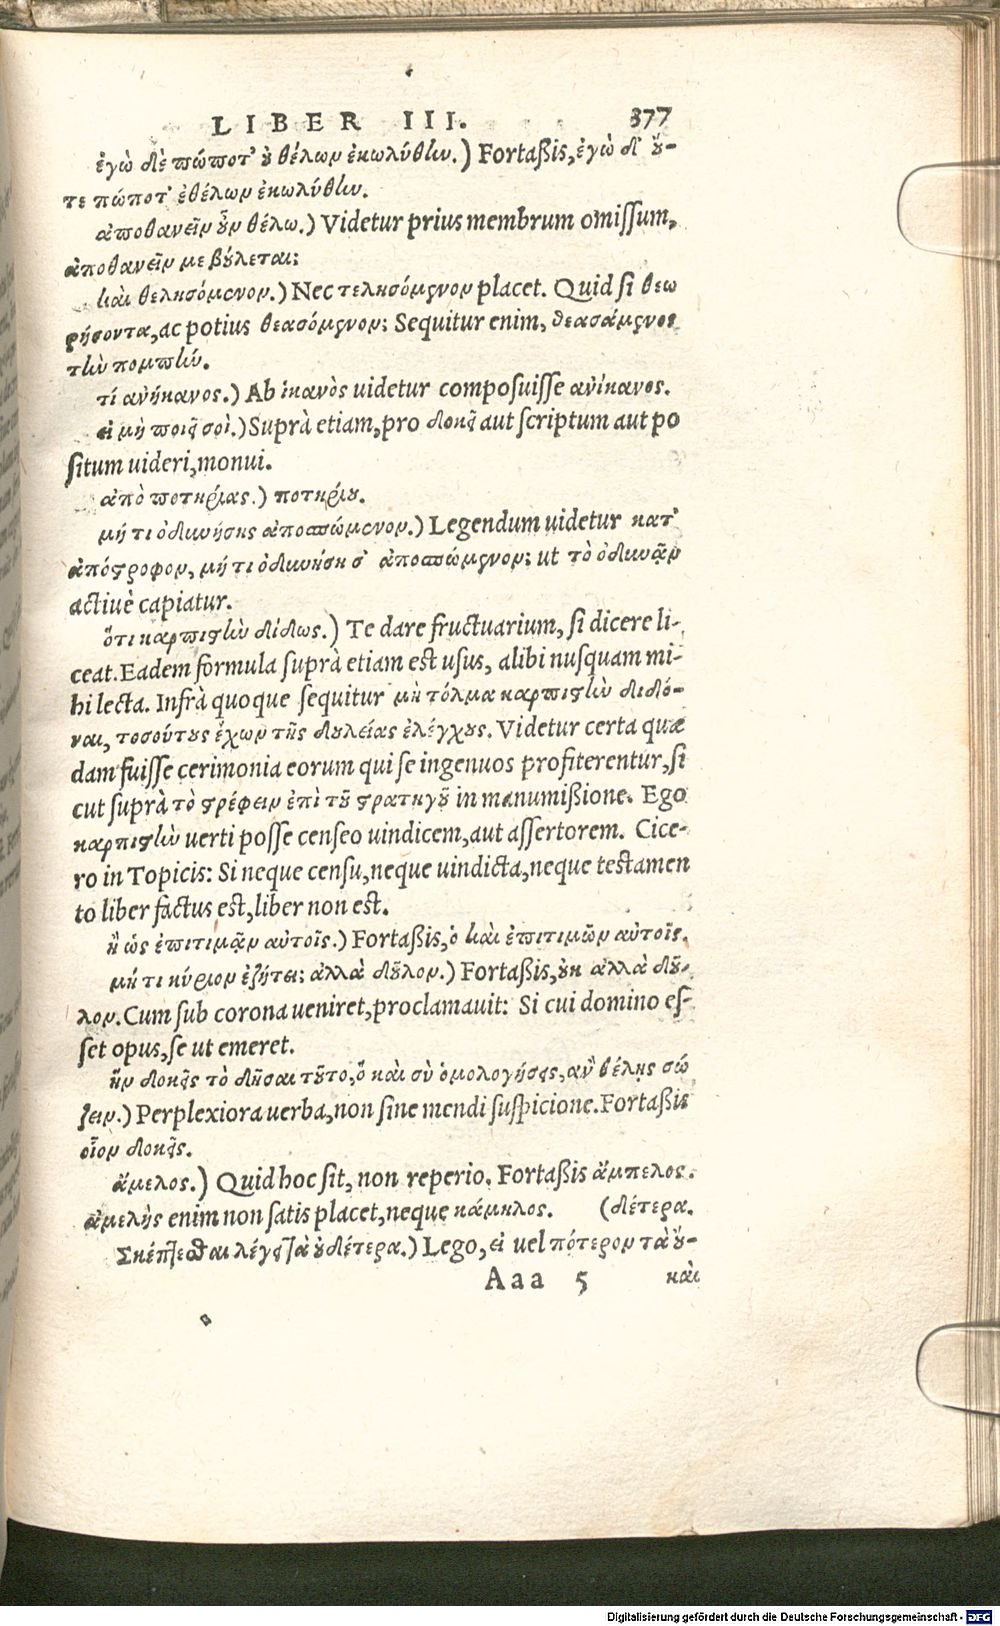 LIBER III. 377
ἐγὼ δὲ πώποτ' ὀ θέλων ἐκωλύθην.) Fortaßis, ἐγὼ δ' ὔ-
τε πώποτ' ἐθέλων ἐκωλύθην.
ἀποθανεῖν ὖν θέλω.) Videtur prius membrum omiſſum,
ἀποθανεῖν με βύλεται;
καὶ θελησόμενον.) Nec τελησόμενον placet. Quid ſi θεω
ρήσοντα, ac potius θεασόμενον; Sequitur enim, θεασάμενος
τὴν πομπήν.
τί ἀνήκανος.) Ab ἱκανὸς uidetur compoſuiſſe ἀνίκανος.
εἰ μὴ ποιεῖ σοὶ.) Suprà etiam, pro δοκεῖ aut ſcriptum aut po
ſitum uideri, monui.
ἀπὸ ποτηρίας.) ποτηρίυ.
μή τι ὀδυνήσης ἀποσπώμενον.) Legendum uidetur κατ'
ἀπόστροφον, μή τι ὀδυνήση σ' ἀποσπώμενον; ut τὸ ὀδυνᾷν
actiuè capiatur.
ὅτι καρπιστὴν δίδως.) Te dare fructuarium, ſi dicere li-
ceat. Eadem formula ſuprà etiam eſt uſus, alibi nuſquam mi-
hi lecta. Infrà quoque ſequitur μὴ τόλμα καρπιστὴν διδό-
ναι, τοσούτυς ἔχων τῆς δυλείας ἐλέγχυς. Videtur certa quæ
dam fuiſſe cerimonia eorum qui ſe ingenuos profiterentur, ſi
cut ſuprà τὸ στρέφειν ἐπὶ τῦ στρατηγῦ in manumißione. Ego
καρπιστὴν uerti poſſe cenſeo uindicem, aut aſſertorem. Cice-
ro in Topicis: Si neque cenſu, neque uindicta, neque teſtamen
to liber factus eſt, liber non eſt.
ἢ ὡς ἐπιτιμᾷν αὐτοῖς.) Fortaßis, ὁ καὶ ἐπιτιμῶν αὐτοῖς.
μή τι κύριον ἐζήτει; ἀλλὰ δῦλον.) Fortaßis, ὐκ ἀλλὰ δῦ-
λον. Cum ſub corona ueniret, proclamauit: Si cui domino eſ-
ſet opus, ſe ut emeret.
ἣν δοκεῖς τὸ δῆσαι τῦτο, ὃ καὶ σὺ ὁμολογήσεις, ἂν θέλῃς σώ
ζειν.) Perplexiora uerba, non ſine mendi ſuſpicione. Fortaßis
οἷον δοκεῖς.
ἄμελος.) Quid hoc ſit, non reperio. Fortaßis ἄμπελος.
ἀμελὴς enim non ſatis placet, neque κάμηλος. (δέτερα.
Σκέπτεσθαι λέγει τὰ ὐδέτερα.) Lego, εἰ uel πότερον τὰ ὔ-
Aaa 5 καὶ
Digitalisierung gefördert durch die Deutsche Forschungsgemeinschaft - DFG